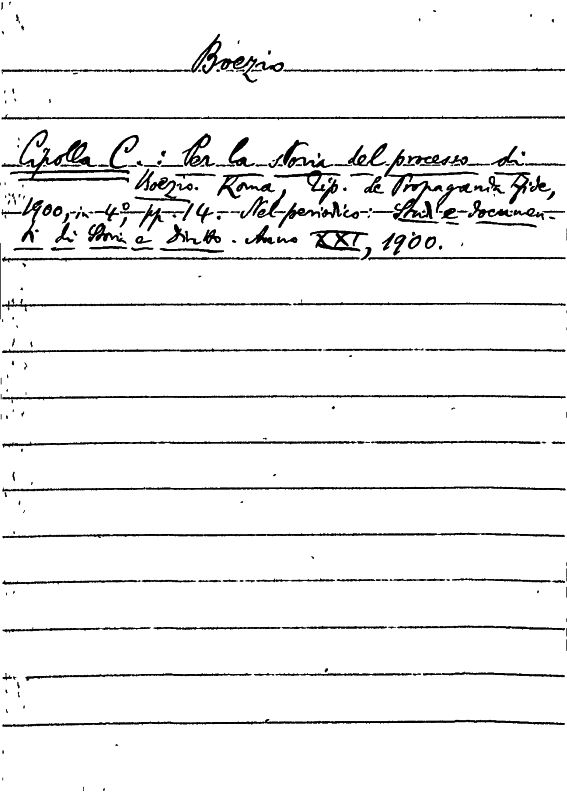 Boezio
Cipolla C. : Per la storia del processo di
Boezio. Roma, Tip. de Propaganda Fide,
1900, in 4º, pp. 14. Nel periodico: Studi e documen-
ti di Storia e Diritto. Anno XXI, 1900.